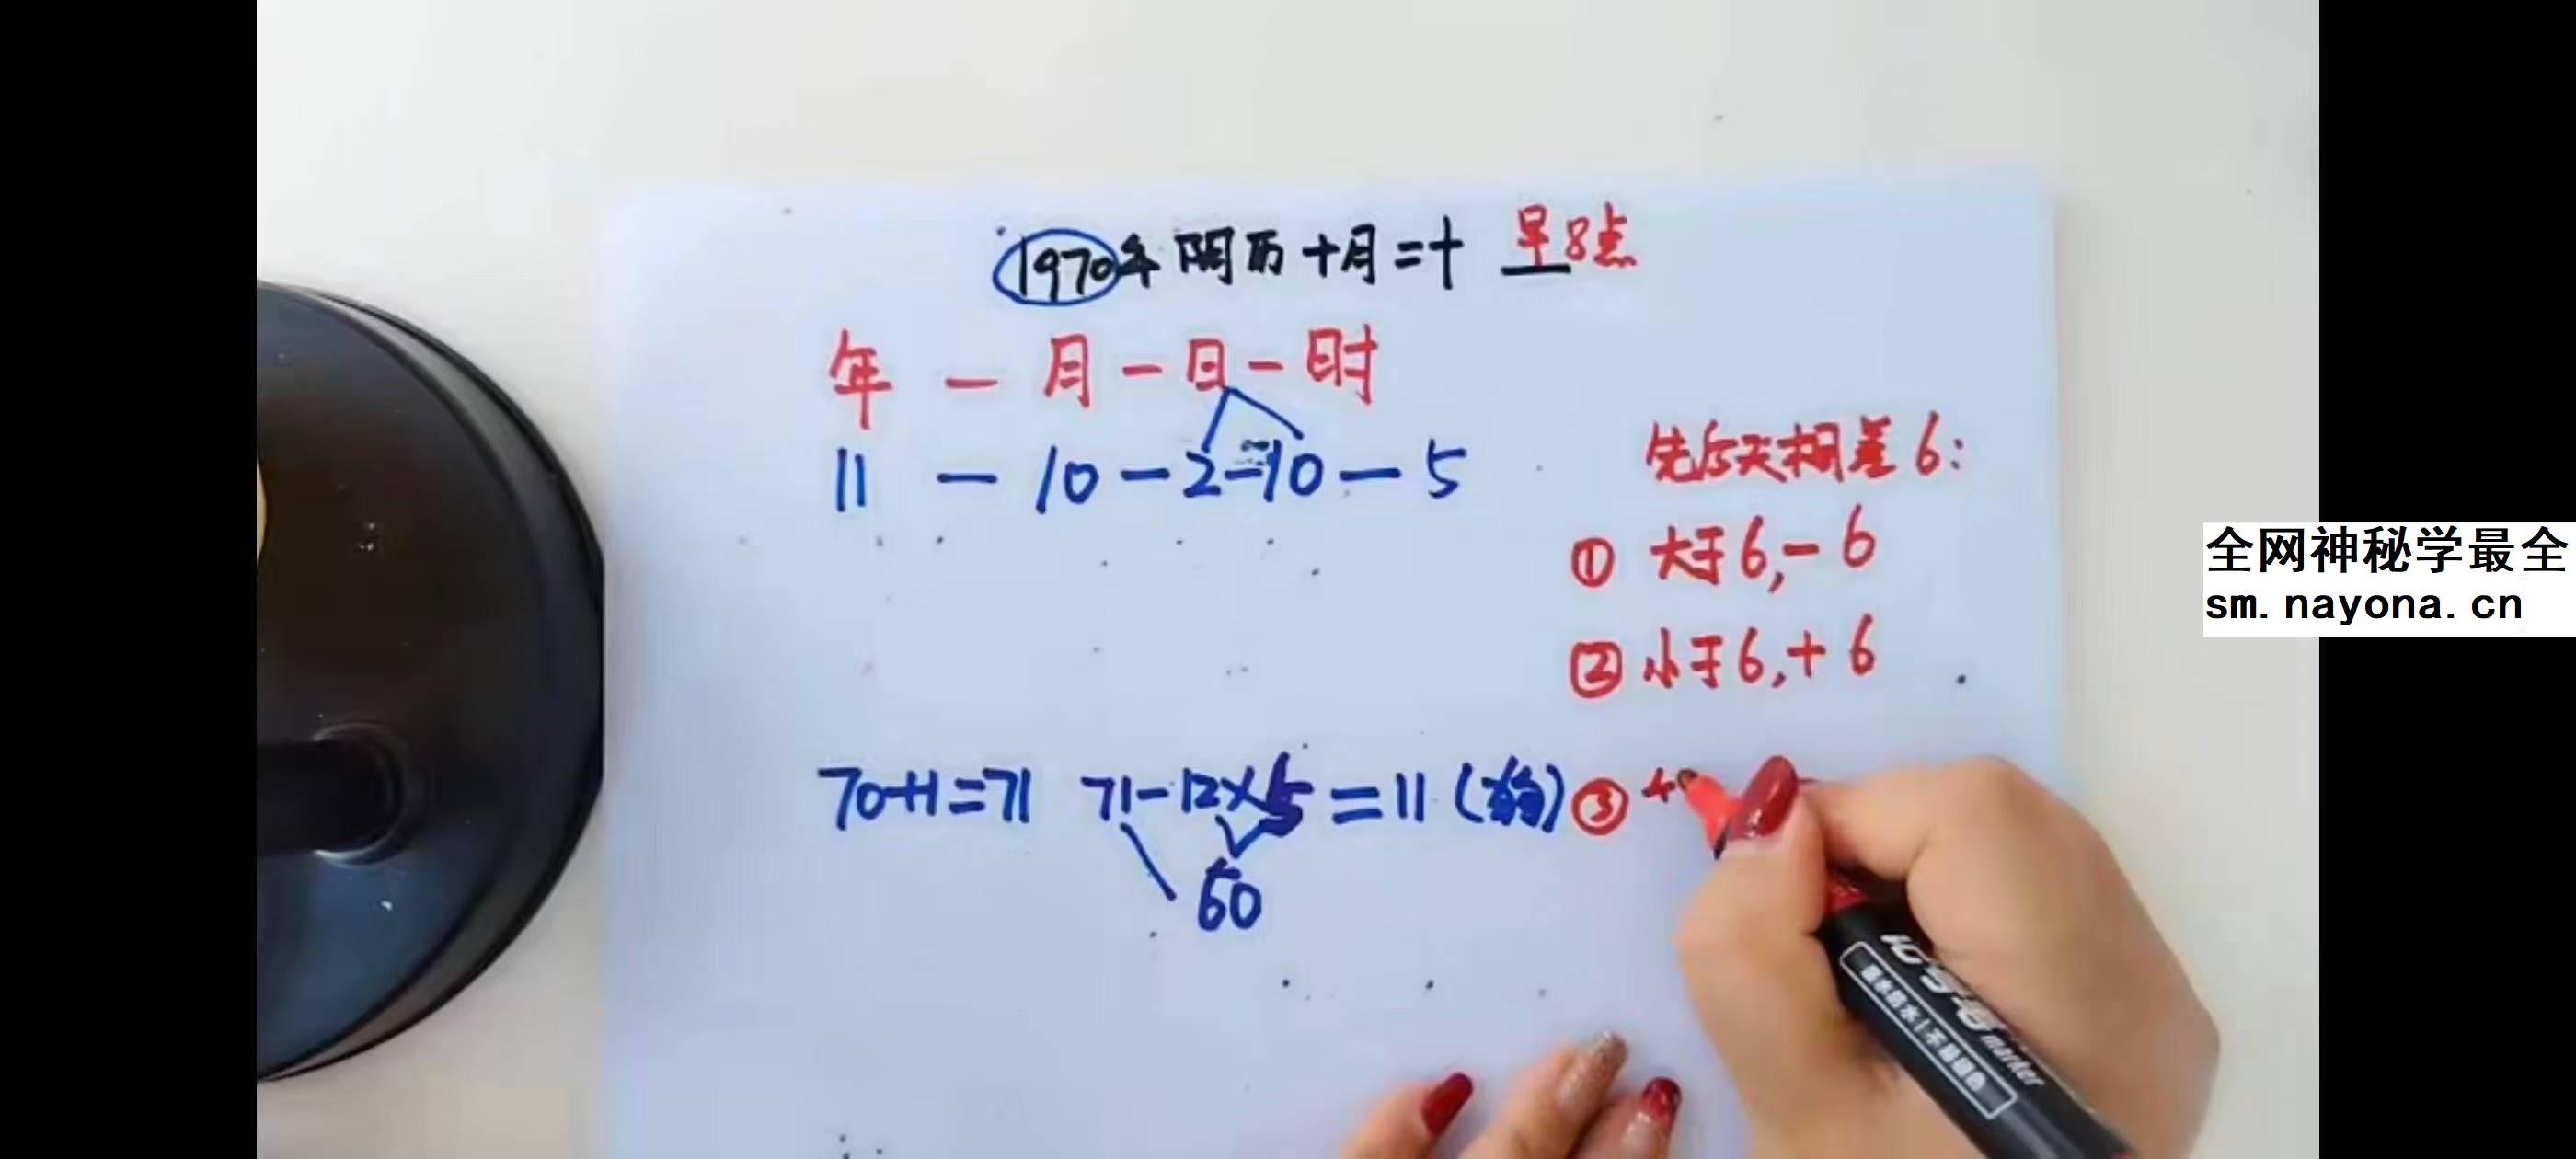 1970年 阴历十月二十 早8点
年 — 月 — 日 — 时
11 — 10 — 2 — 10 — 5
先后天相差6:
① 大于6,-6
② 小于6,+6
70+1=71 71-12×5=11(狗) ③
60
全网神秘学最全
sm.nayona.cn
记号笔
marker